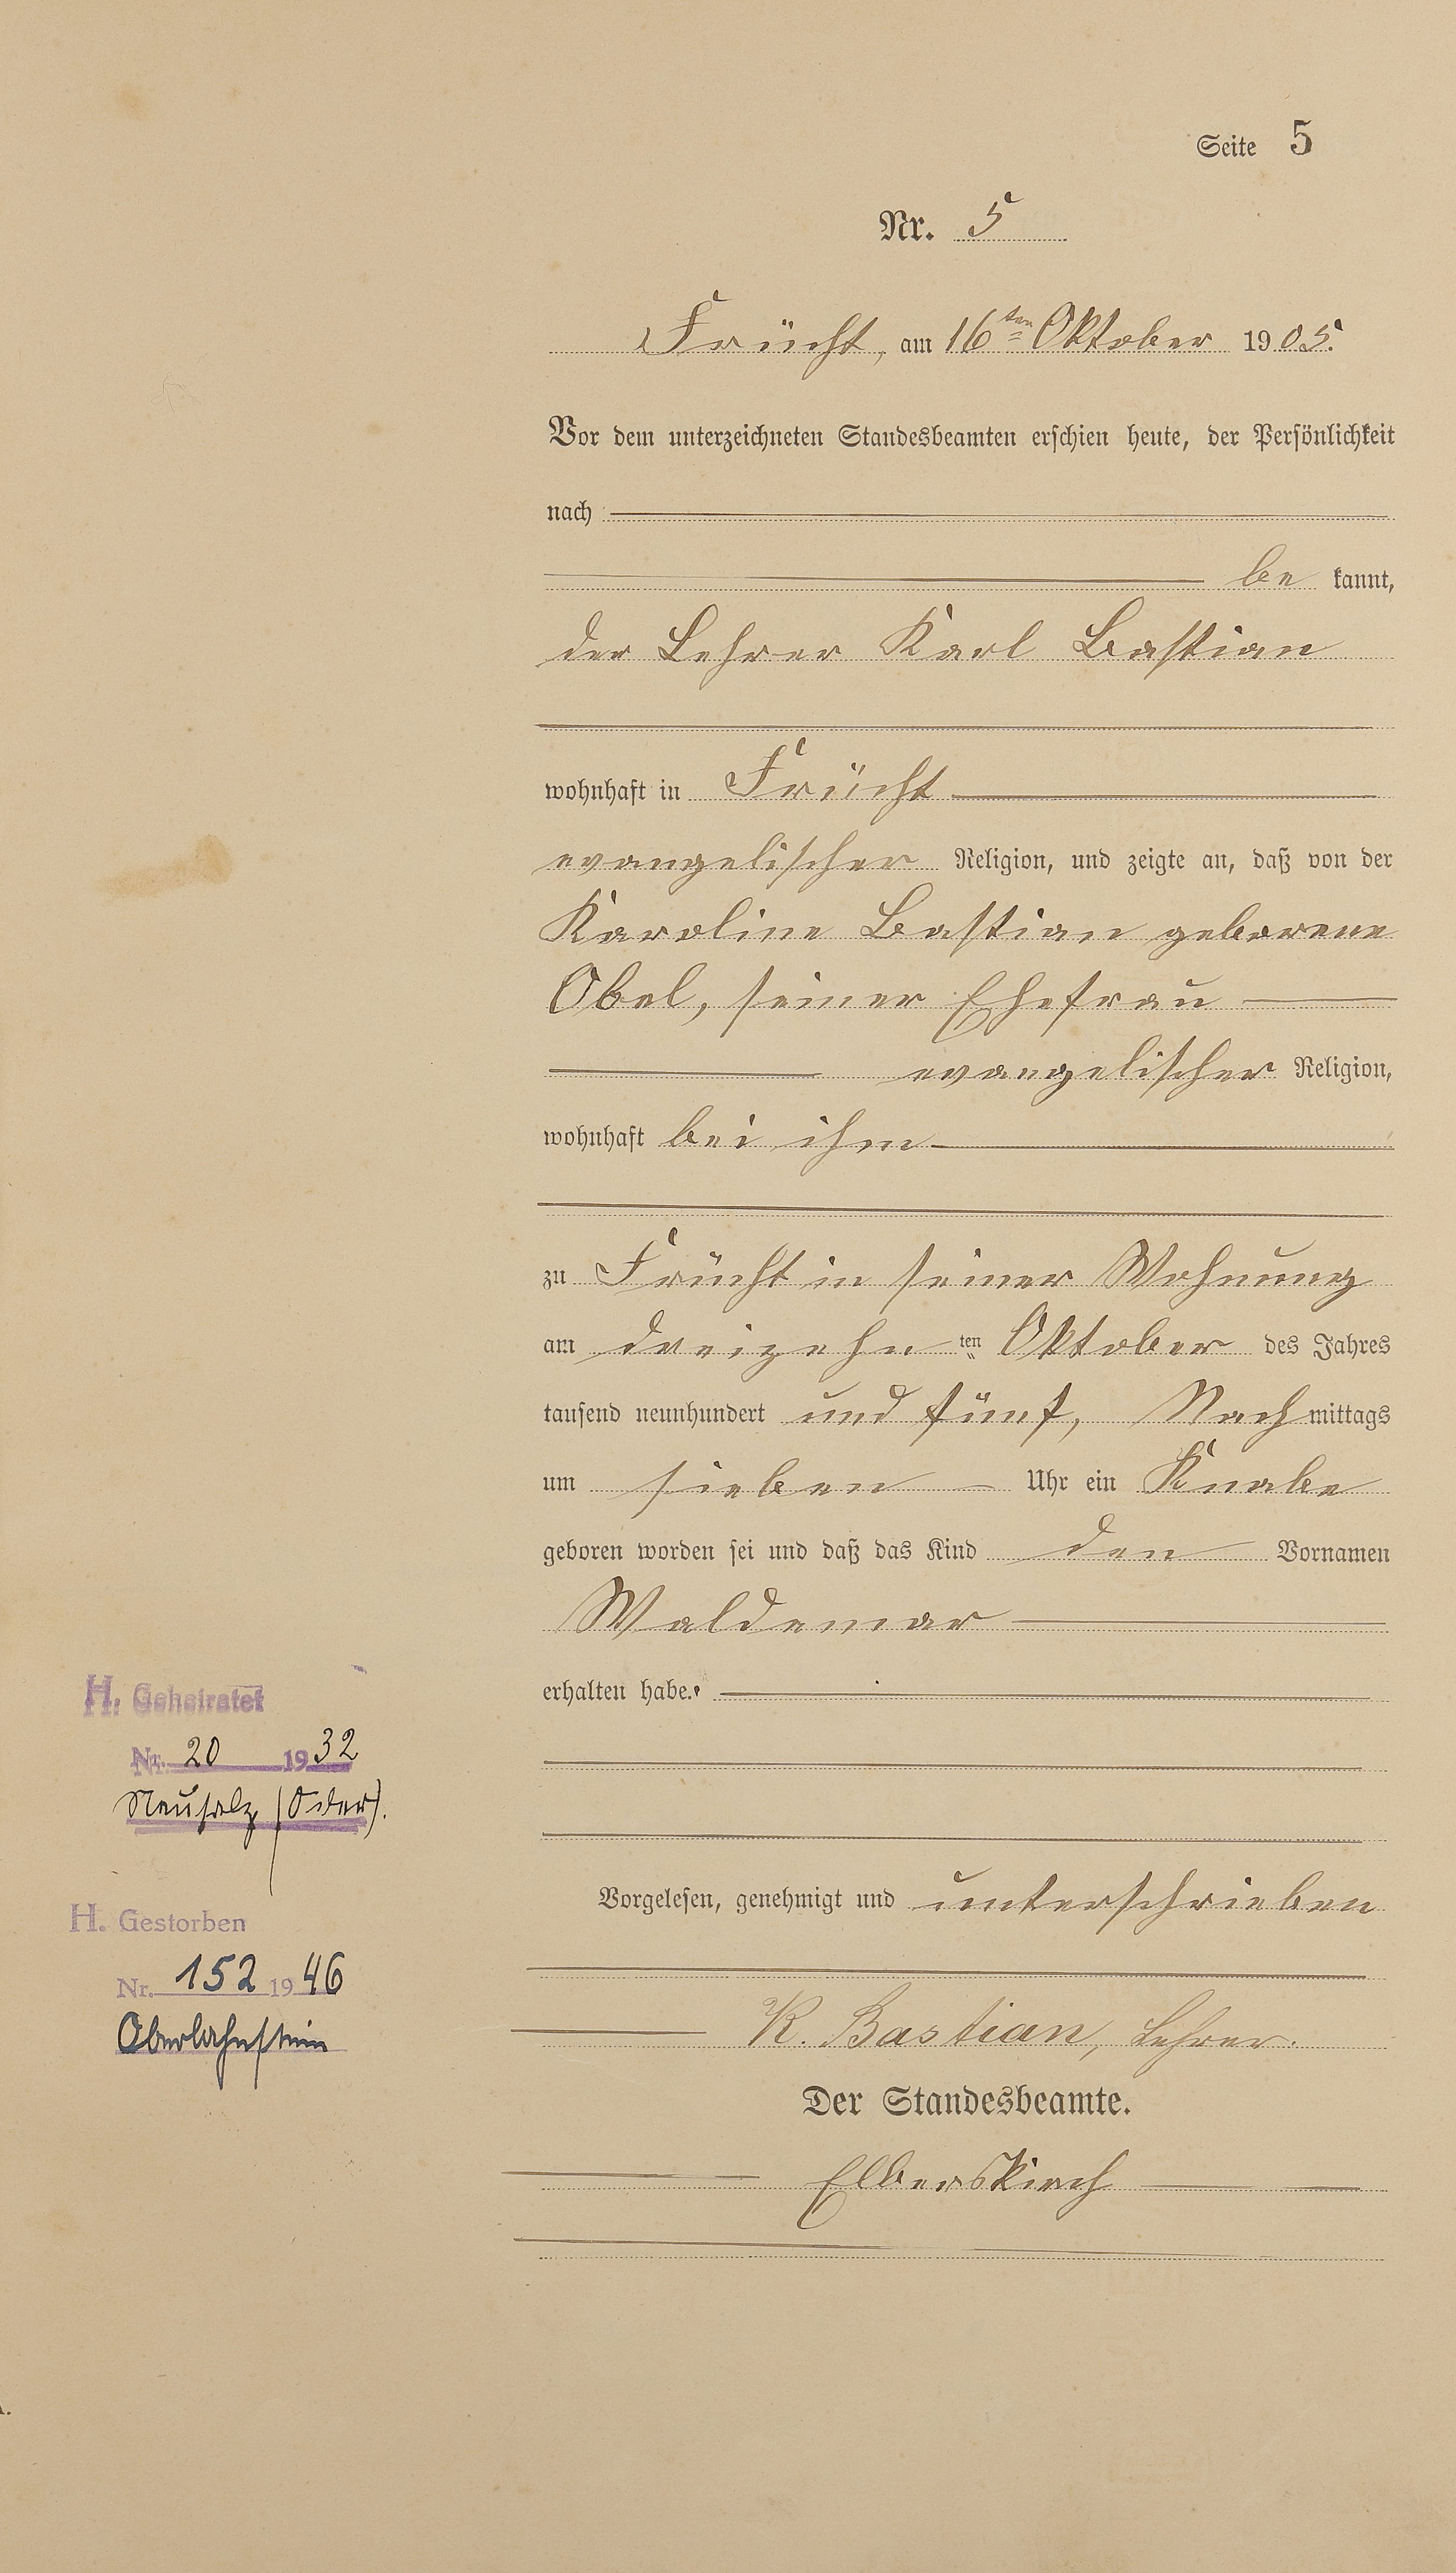 Seite 5
Nr. 5
Frücht, am 16ten Oktober 1905.
Vor dem unterzeichneten Standesbeamten erschien heute, der Persönlichkeit
nach
be kannt,
der Lehrer Karl Bastian
wohnhaft in Frücht
evangelischer Religion, und zeigte an, daß von der
Karoline Bastian geborene
Obel, seiner Ehefrau
evangelischer Religion,
wohnhaft bei ihm
zu Frücht in seiner Wohnung
am dreizehnten Oktober des Jahres
tausend neunhundert und fünf, Nachmittags
um sieben Uhr ein Knabe
geboren worden sei und daß das Kind den Vornamen
Waldemar
erhalten habe.
H. Geheiratet
Nr. 20 1932
Neusalz (Oder).
Vorgelesen, genehmigt und unterschrieben
H. Gestorben
Nr. 152 1946
Oberlahnstein
K. Bastian, Lehrer.
Der Standesbeamte.
Elberskirch